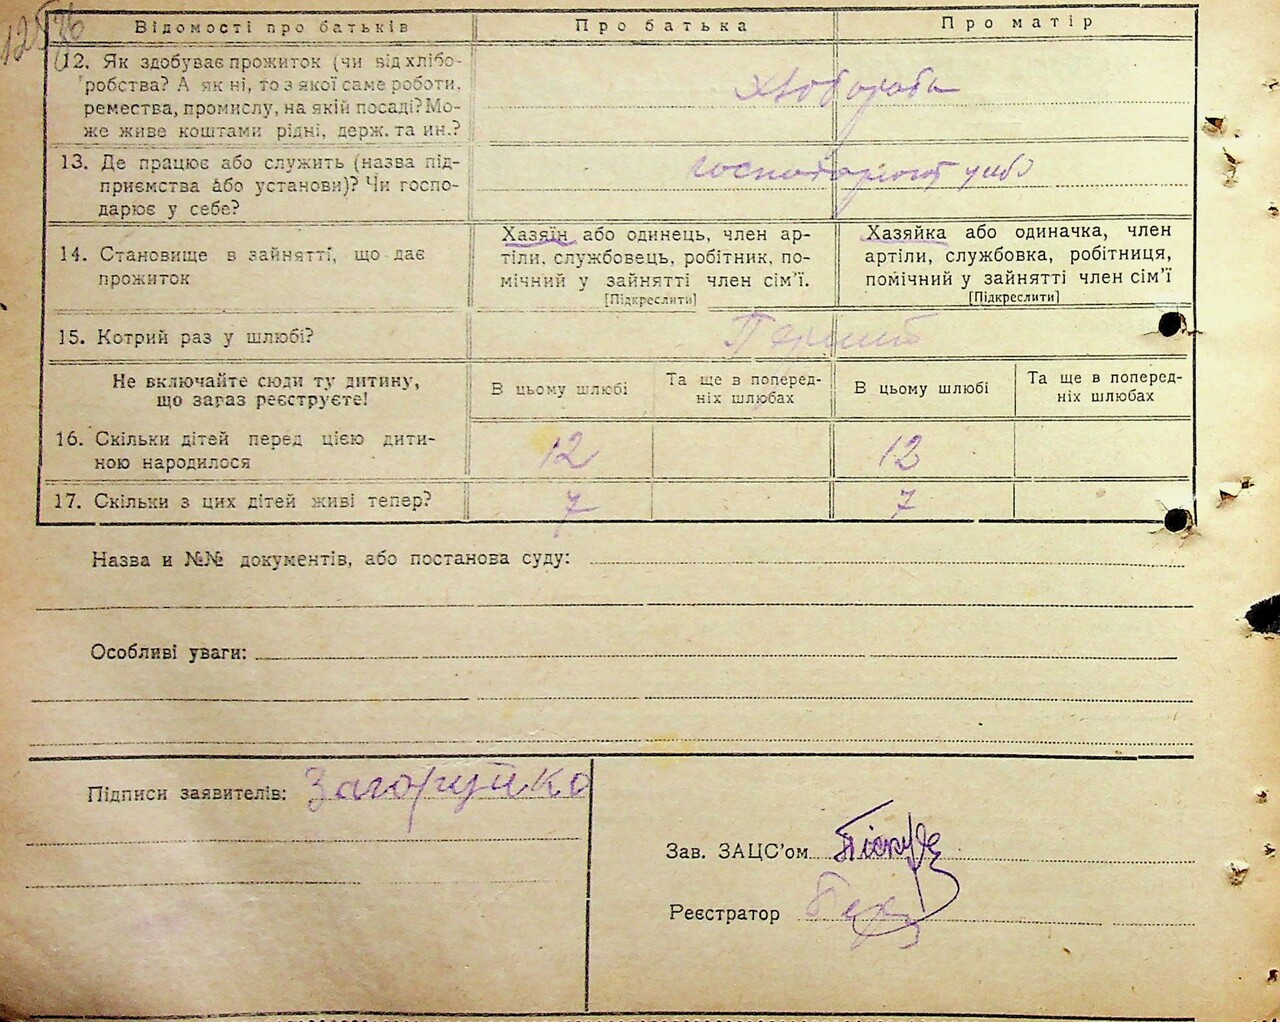 Відомості про батьків
Про батька
Про матір
12. Як здобуває прожиток (чи від хлібо-
робства? А як ні, то з якої саме роботи,
ремества, промислу, на якій посаді? Мо-
же живе коштами рідні, держ. та ин.?
13. Де працює або служить (назва під-
приємства або установи)? Чи госпо-
дарює у себе?
14. Становище в зайнятті, що дає
прожиток
Хазяїн або одинець, член ар-
тіли, службовець, робітник, по-
мічний у зайнятті член сім'ї.
[Підкреслити]
Хазяйка або одиначка, член
артіли, службовка, робітниця,
помічний у зайнятті член сім'ї
[Підкреслити]
15. Котрий раз у шлюбі?
Не включайте сюди ту дитину,
що зараз реєструєте!
В цьому шлюбі
Та ще в поперед-
ніх шлюбах
В цьому шлюбі
Та ще в поперед-
ніх шлюбах
16. Скільки дітей перед цією дити-
ною народилося
12
12
17. Скільки з цих дітей живі тепер?
7
7
Назва и №№ документів, або постанова суду:
Особливі уваги:
Підписи заявителів: Загоруйко
Зав. ЗАЦС'ом
Реєстратор